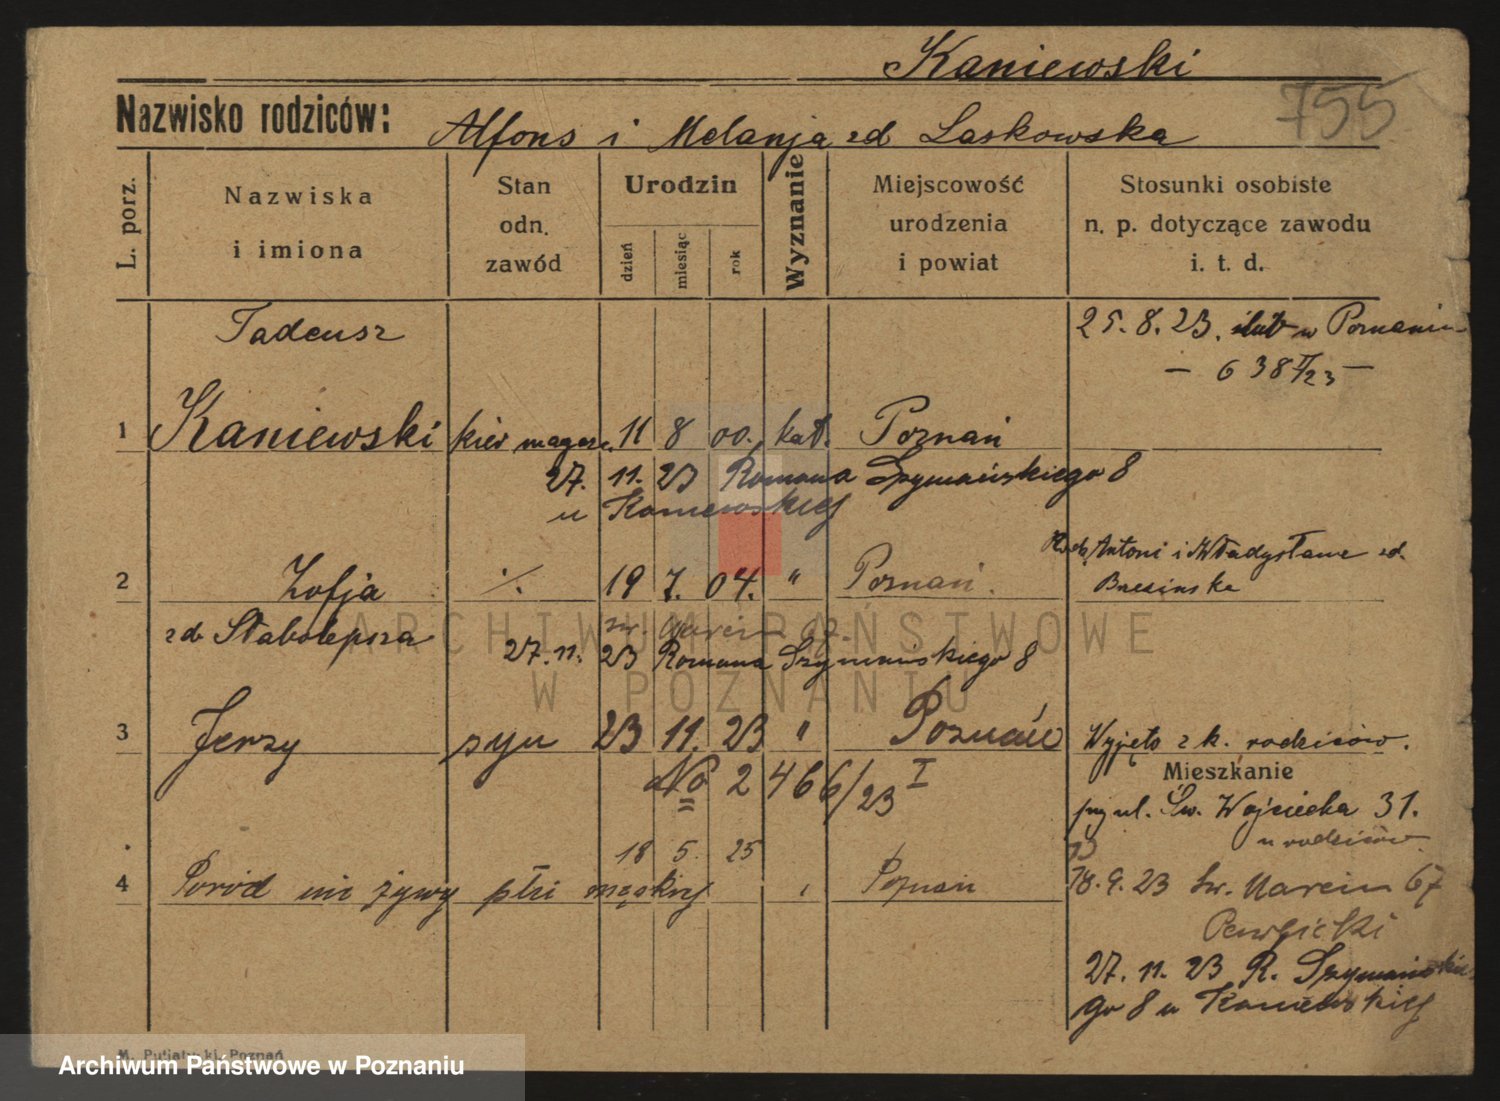 Kaniewski
755
Nazwisko rodziców: Alfons i Melanja zd Laskowska
L. porz.
Nazwiska i imiona
Stan odn. zawód
Urodzin
dzień miesiąc rok
Wyznanie
Miejscowość urodzenia i powiat
Stosunki osobiste n. p. dotyczące zawodu i. t. d.
Tadeusz
25. 8. 23. ślub w Poznaniu
— 638 II/23 —
1 Kaniewski kier magaz. 11 8 00. kat. Poznań
27. 11. 23 Romana Szymańskiego 8
u Kaniewskiej
Rodz. Antoni i Władysława zd.
2 Zofja ·/. 19 7. 04. " Poznań.
Brezińska
zd Stabolepsza
św. Marcin 67.
27. 11. 23 Romana Szymańskiego 8
3 Jerzy syn 23 11. 23 " Poznań
Wyjęto z k. rodziców.
Mieszkanie
No 2466/23 I
ul. Św. Wojciecha 31.
u rodziców
18 5. 25
4 Poród nie żywy płci męskiej Poznań
18. 9. 23 Św. Marcin 67
27. 11. 23 R. Szymańskie-
go 8 u Kaniewskiej
M. Putiatycki, Poznań
ARCHIWUM PAŃSTWOWE
W POZNANIU
Archiwum Państwowe w Poznaniu